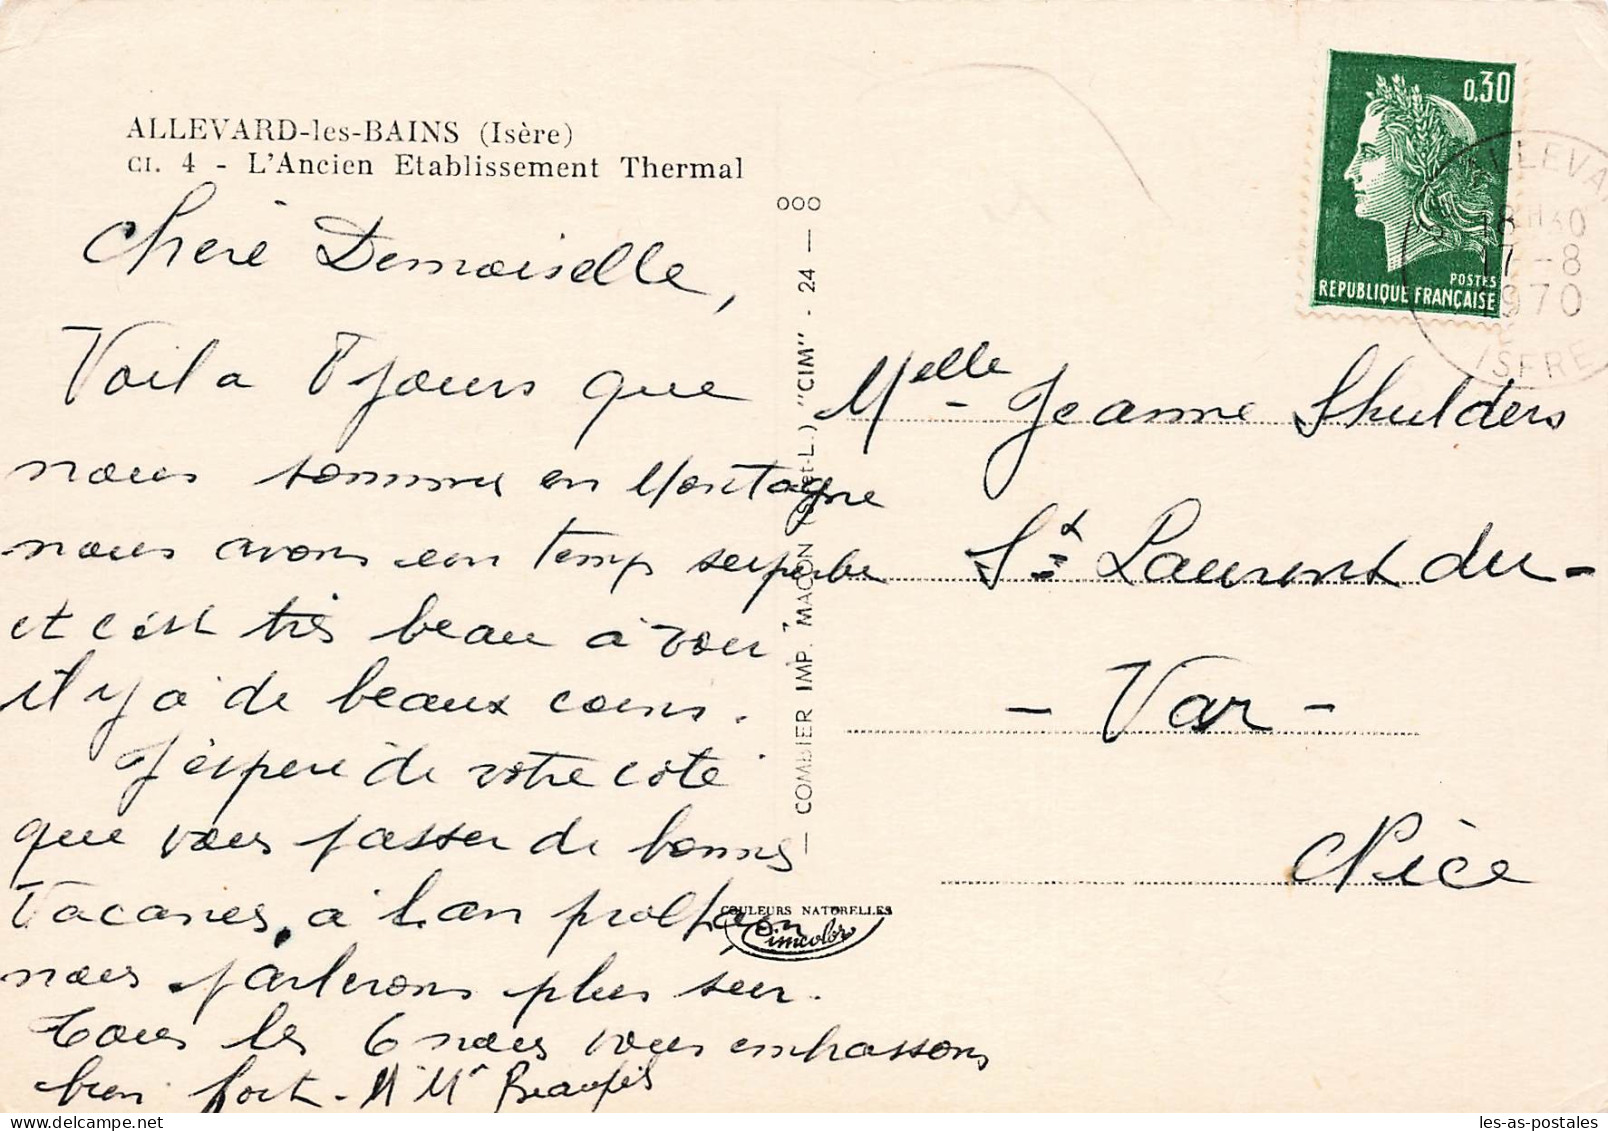 ALLEVARD-les-BAINS (Isère)
CI. 4 - L'Ancien Etablissement Thermal
Chère Demoiselle,
Voila 8 jours que
nous sommes en Montagne
nous avons eu un temps superbe
et c'est très beau à voir
il y a de beaux coins.
J'espère de votre coté
que vous passer de bonnes
Vacances, a l'an prochain
nous parlerons plus sur.
Tous les 6 nous vous embrassons
bien fort. M Mr Beaufils
000
COMBIER IMP. MACON (S.-et-L.) "CIM" - 24
COULEURS NATURELLES
Cimcolor
0,30
POSTES
REPUBLIQUE FRANÇAISE
ALLEVA
18H30
17-8
1970
ISERE
Melle Jeanne Shulders
St Laurent du-
- Var -
Nice
les-as-postales